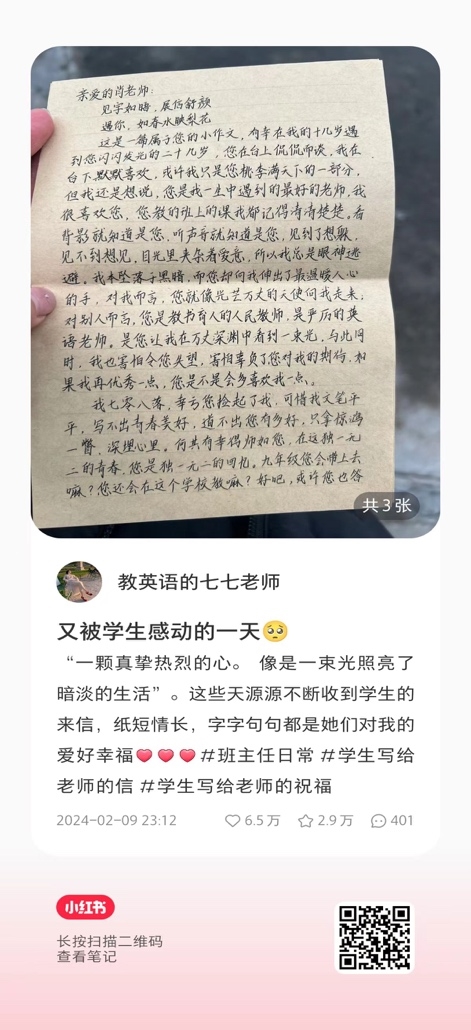 亲爱的肖老师:
见字如晤,展信舒颜
遇你,如春水映梨花
这是一篇属于您的小作文,有幸在我的十几岁遇
到您闪闪发光的二十几岁,您在台上侃侃而谈,我在
台下默默喜欢,或许我只是您桃李满天下的一部分,
但我还是想说,您是我一生中遇到的最好的老师,我
很喜欢您,您教的班上的课我都记得清清楚楚。看
背影就知道是您,听声音就知道是您,见到了想躲,
见不到想见。目光里夹杂着爱意,所以我总是眼神逃
避,我本坠落于黑暗,而您却向我伸出了最温暖人心
的手,对我而言,您就像光芒万丈的天使向我走来,
对别人而言,您是教书育人的人民教师,是严厉的英
语老师,是您让我在万丈深渊中看到一束光,与此同
时,我也害怕令您失望,害怕辜负了您对我的期待,如
果我再优秀一点,您是不是会多喜欢我一点。
我七零八落,幸亏您捡起了我,可惜我文笔平
平,写不出青春美好,道不出您有多好,只拿惊鸿
一瞥,深埋心里。何其有幸得师如您,在这独一无
二的青春,您是独一无二的回忆。九年级您会带上去
嘛?您还会在这个学校教嘛?好吧,或许您也答
共3张
教英语的七七老师
又被学生感动的一天🥺
“一颗真挚热烈的心。 像是一束光照亮了
暗淡的生活”。这些天源源不断收到学生的
来信,纸短情长,字字句句都是她们对我的
爱好幸福❤️❤️❤️#班主任日常 #学生写给
老师的信 #学生写给老师的祝福
2024-02-09 23:12 6.5万 2.9万 401
小红书
长按扫描二维码
查看笔记